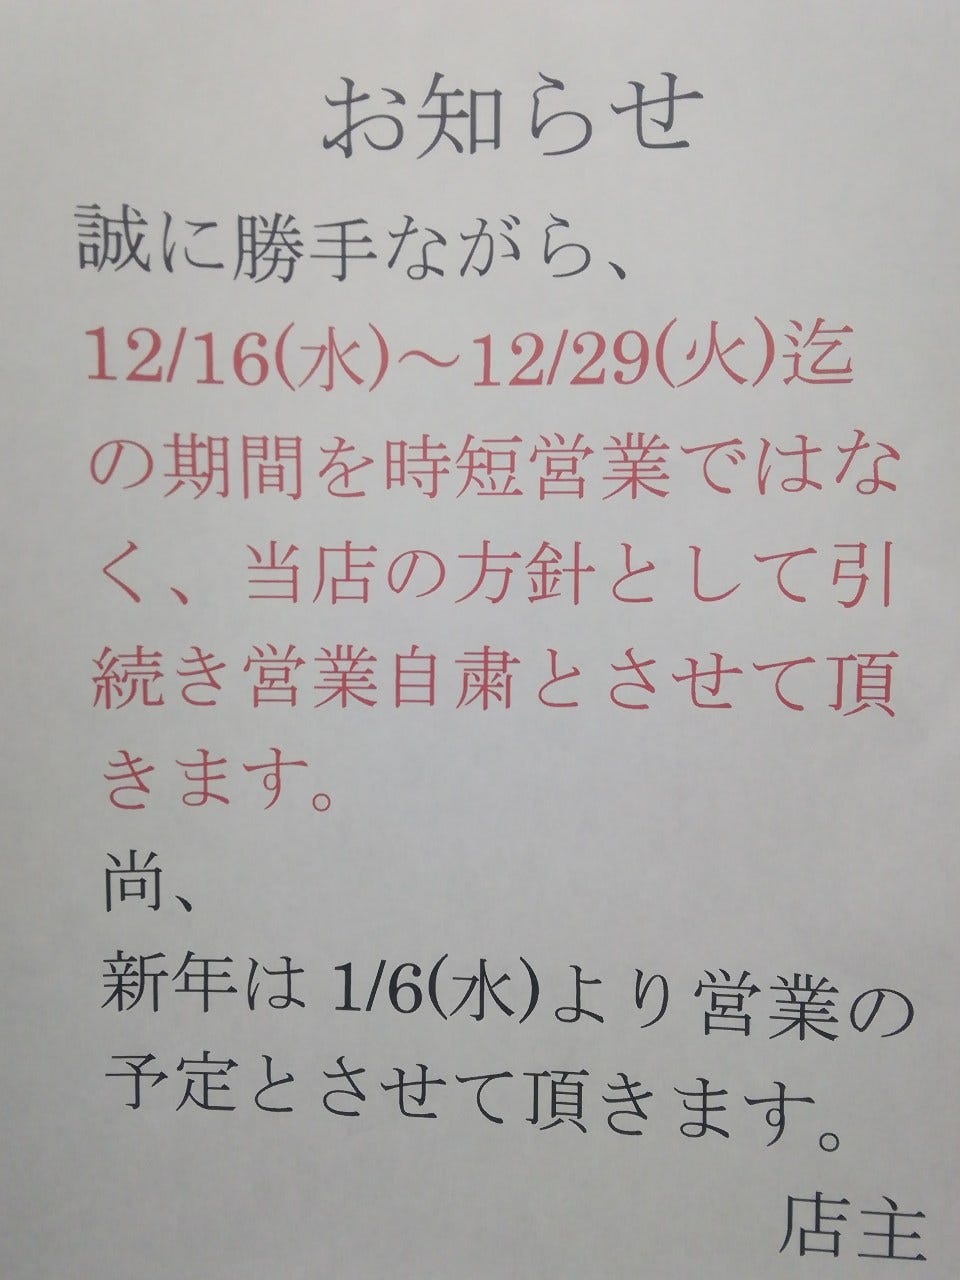 お知らせ
誠に勝手ながら、
12/16(水)～12/29(火)迄
の期間を時短営業ではな
く、当店の方針として引
続き営業自粛とさせて頂
きます。
尚、
新年は 1/6(水)より営業の
予定とさせて頂きます。
店主